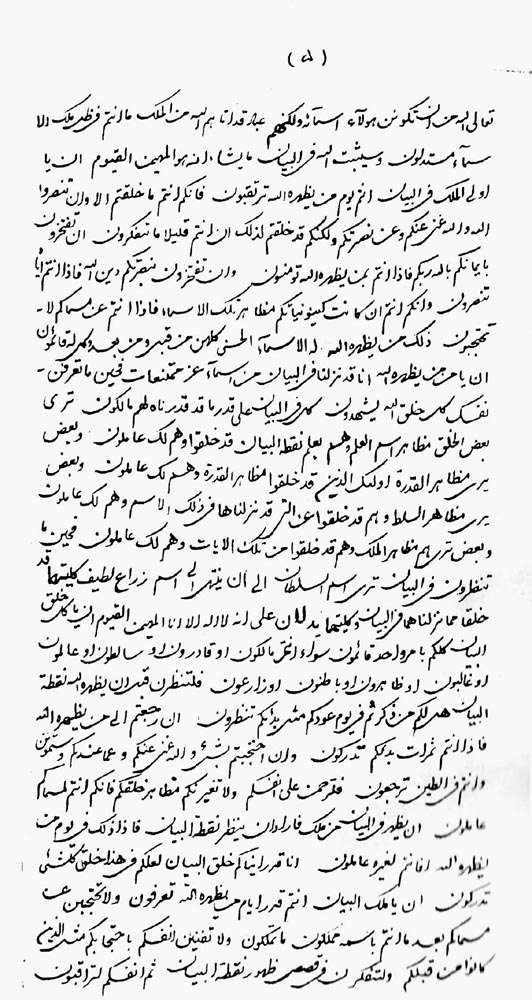 (۵)
تعالى الله من ان تكونن هولاء اسمائه ولكنهم عباد قد اتاهم الله من الملك ما انتم في ظل ملك الا
سماء مستدلون وسيثبت الله في البيان ما يشاء انه هو المهيمن القيوم ان يا
اولى الملك في البيان انتم يوم من يظهره الله ترتقبون فانكم انتم ما خلقتم الا وان تنصروا
الله والله غني عنكم وعن نصرتكم ولكنكم قد خلقتم لذلك ان انتم قليلا ما تتفكرون ان تفتخرون
بايمانكم بالله ربكم فاذا انتم بمن يظهره الله تومنون وان تفتخرون بنصرتكم دين الله فاذا انتم اياه
تنصرون وانكم انتم ان كانت كينونياتكم مظاهر تلك الاسماء فاذا انتم عن مسماكم لا
تحتجبون ذلك من يظهره الله له الاسماء الحسنى كلهن من قبل ومن بعد وكل له قائمون
ان يا من يظهره الله انا قد نزلنا في البيان من اسماء عز ممتنعات فحين ما تعرفن
نفسك كل خلق الله يشهدون كل في البيان على قدر ما قد قدرناه لهم مالكون ترى
بعض الخلق مظاهر اسم العلم وهم بعلم نقطة البيان قد خلقوا وهم لك عاملون وبعض
يرى مظاهر القدرة اولئك الذين قد خلقوا مظاهر القدرة وهم لك عاملون وبعض
يرى مظاهر السلط وهم قد خلقوا عن التي قد نزلناها في ذلك الاسم وهم لك عاملون
وبعض ترى هم مظاهر الملك وهم قد خلقوا من تلك الايات وهم لك عاملون فحين ما
تنظرون في البيان ترى اسم السلطان الى ان ينتهى الى اسم زراع لطيف كليتهما قد
خلقا مما نزلناهما في البيان وكليتهما يدلان على انه لا اله الا انا المهيمن القيوم ان يا كل خلق
البيان كلكم بامر واحد قائمون سواء انتم مالكون او قادرون او سالطون او عالمون
او غالبون او ظاهرون او باطنون او زارعون فلتنظرن قبل ان يظهر الله نقطة
البيان هل لكم من ذكر ثم في يوم عودكم مثل بدئكم تنظرون ان رجعتم الى من يظهره الله
فاذا انتم ثمرات بدئكم تدركون وان احتجبتم بشيء والله غني عنكم وعما عندكم
وانتم في الطين ترجعون فلترحمن على انفسكم ولا تغيرنكم مظاهر خلقكم فانكم انتم لمسماكم
عاملون ان يظهر في البيان من ملك فاراد ان ينظر نقطة البيان فاذا ذلك في يوم من
يظهره الله افانتم لغيره عاملون انا قد ارياكم خلق البيان لعلكم في هذا خلق كلشئ
تدركون ان يا ملك البيان انتم قدر ايام من يظهره الله تعرفون ولا تحتجبن عن
مسماكم بعد ما انتم باسمه تملكون ما تملكون ولا تفنين انفسكم باحتجابكم مثل الذين
كانوا من قبلكم ولتتفكرن في قصص ظهور نقطة البيان ثم انفسكم لتراقبون